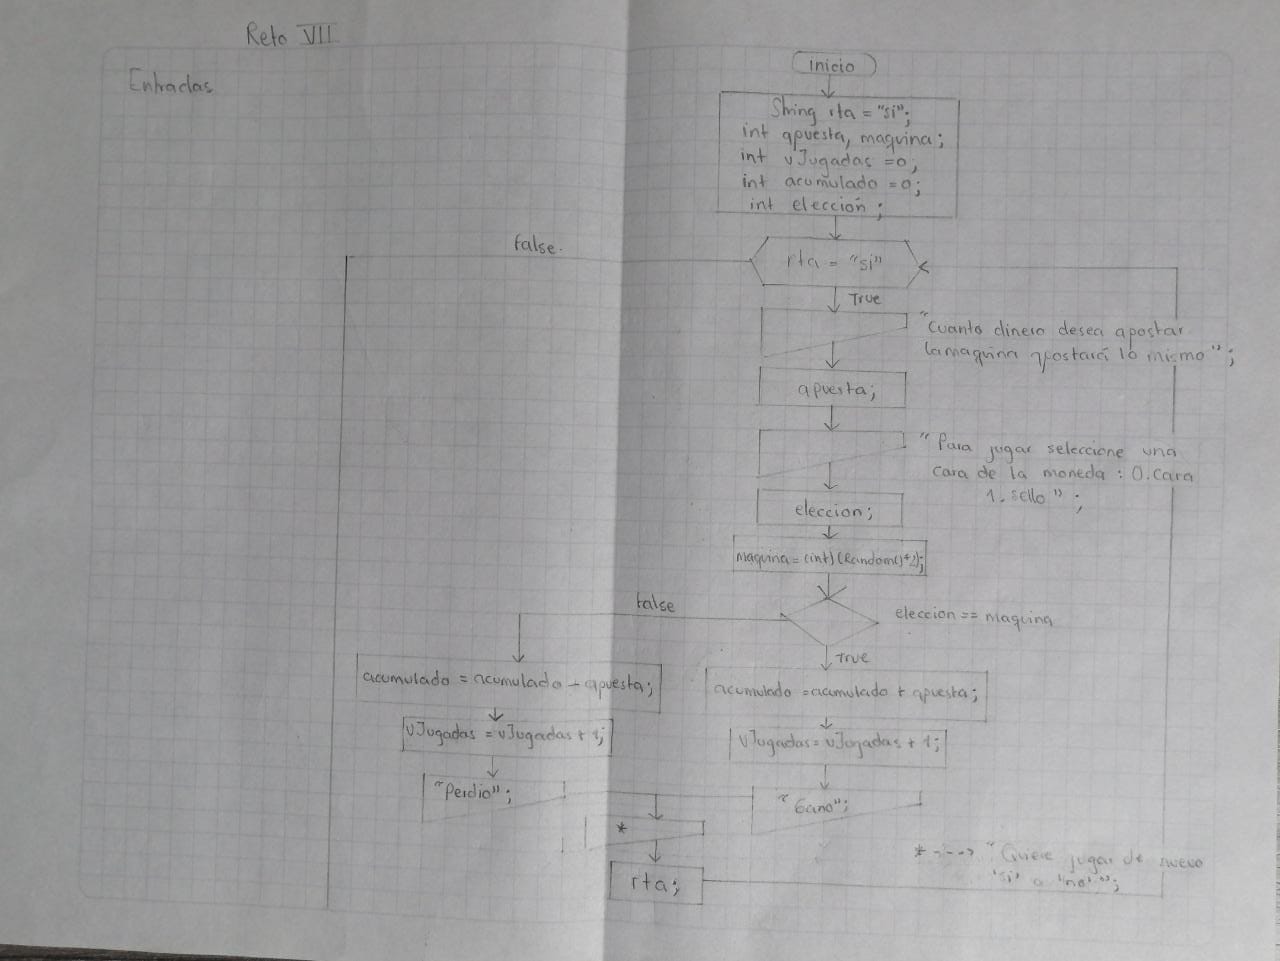 Reto VII
Entradas
inicio
String rta = "si";
int apuesta, maquina;
int vJugadas =0;
int acumulado =0;
int elección;
false.
rta = "si"
True
"Cuanto dinero desea apostar
la maquina apostará lo mismo";
apuesta;
"Para jugar seleccione una
cara de la moneda: 0.Cara
1. sello";
eleccion;
maquina = (int)(Random()*2);
false
eleccion == maquina
True
acumulado = acumulado - apuesta;
acumulado = acumulado + apuesta;
vJugadas = vJugadas + 1;
vJugadas = vJugadas + 1;
"Perdio";
"Gano";
*
* ---> "Quiere jugar de nuevo
"si" o "no"";
rta;